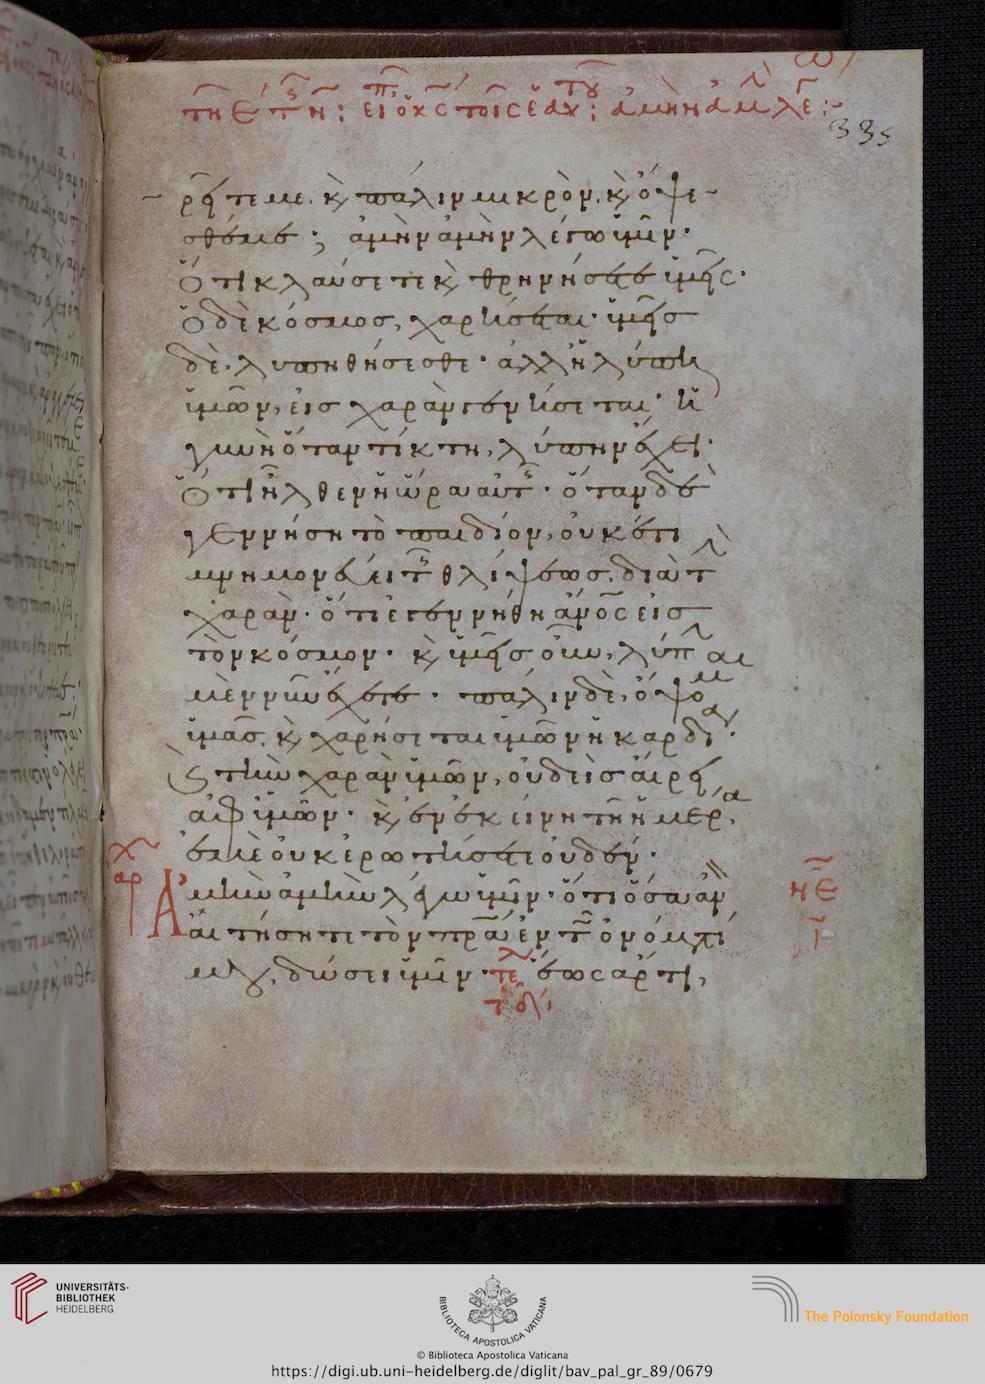 τῆ ε τῆς : εἶ ὁ κς τοῖς ε : ἀμὴν ἀμ λε :
335
ρεῖτέ με. κ πάλιν μικρὸν. κ ὄψε
σθέ με ; ἀμὴν ἀμὴν λέγω ὑμῖν·
Ὅτι κλαύσετε κ θρηνήσετε ὑμεῖς·
Ὁ δὲ κόσμος, χαρήσεται· ὑμεῖς
δὲ, λυπηθήσεσθε· ἀλλ ἡ λύπη
ὑμῶν, εἰς χαρὰν γενήσεται· ἡ
γυνὴ ὅταν τίκτη, λύπην ἔχει·
Ὅτι ἦλθεν ἡ ὥρα αὐτ· ὅταν δὲ
γεννήση τὸ παιδίον, οὐκέτι
μνημονεύει τ θλίψεως. διὰ τ
χαρὰν· ὅτι ἐγεννήθη ἄνος εἰς
τὸν κόσμον· κ ὑμεῖς οὖν, λύπ αι
μὲν νῦν ἔχετε· πάλιν δὲ, ὄψομ
ὑμᾶς. κ χαρήσεται ὑμῶν ἡ καρδι·
κ τὴν χαρὰν ὑμῶν, οὐδεὶς αἴρει
ἀφ ὑμῶν· κ ἐν ἐκείνη τῆ ἡμέρα,
ἐμὲ οὐκ ἐρωτήσετε οὐδέν·
χ
αρ
Ἀμὴν ἀμὴν λέγω ὑμῖν· ὅτι ὅσα ἂν
η ε
αἰτήσητι τὸν πρα ἐν τ ὀνόματί
μου, δώσει ὑμῖν· τε ἕως ἄρτι,
UNIVERSITÄTS-
BIBLIOTHEK
HEIDELBERG
BIBLIOTECA APOSTOLICA VATICANA
The Polonsky Foundation
© Biblioteca Apostolica Vaticana
https://digi.ub.uni-heidelberg.de/diglit/bav_pal_gr_89/0679